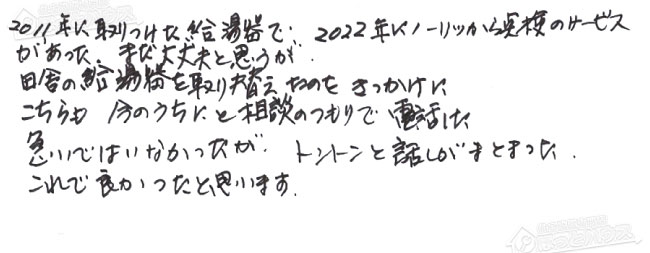 2011年に取りつけた給湯器で、2022年にノーリツから点検のサービス
があった、まだ大丈夫と思うが、
田舎の給湯器を取り替えたのをきっかけに
こちらも今のうちにと相談のつもりで電話した
急いではいなかったが、トントンと話しがまとまった.
これで良かったと思います.